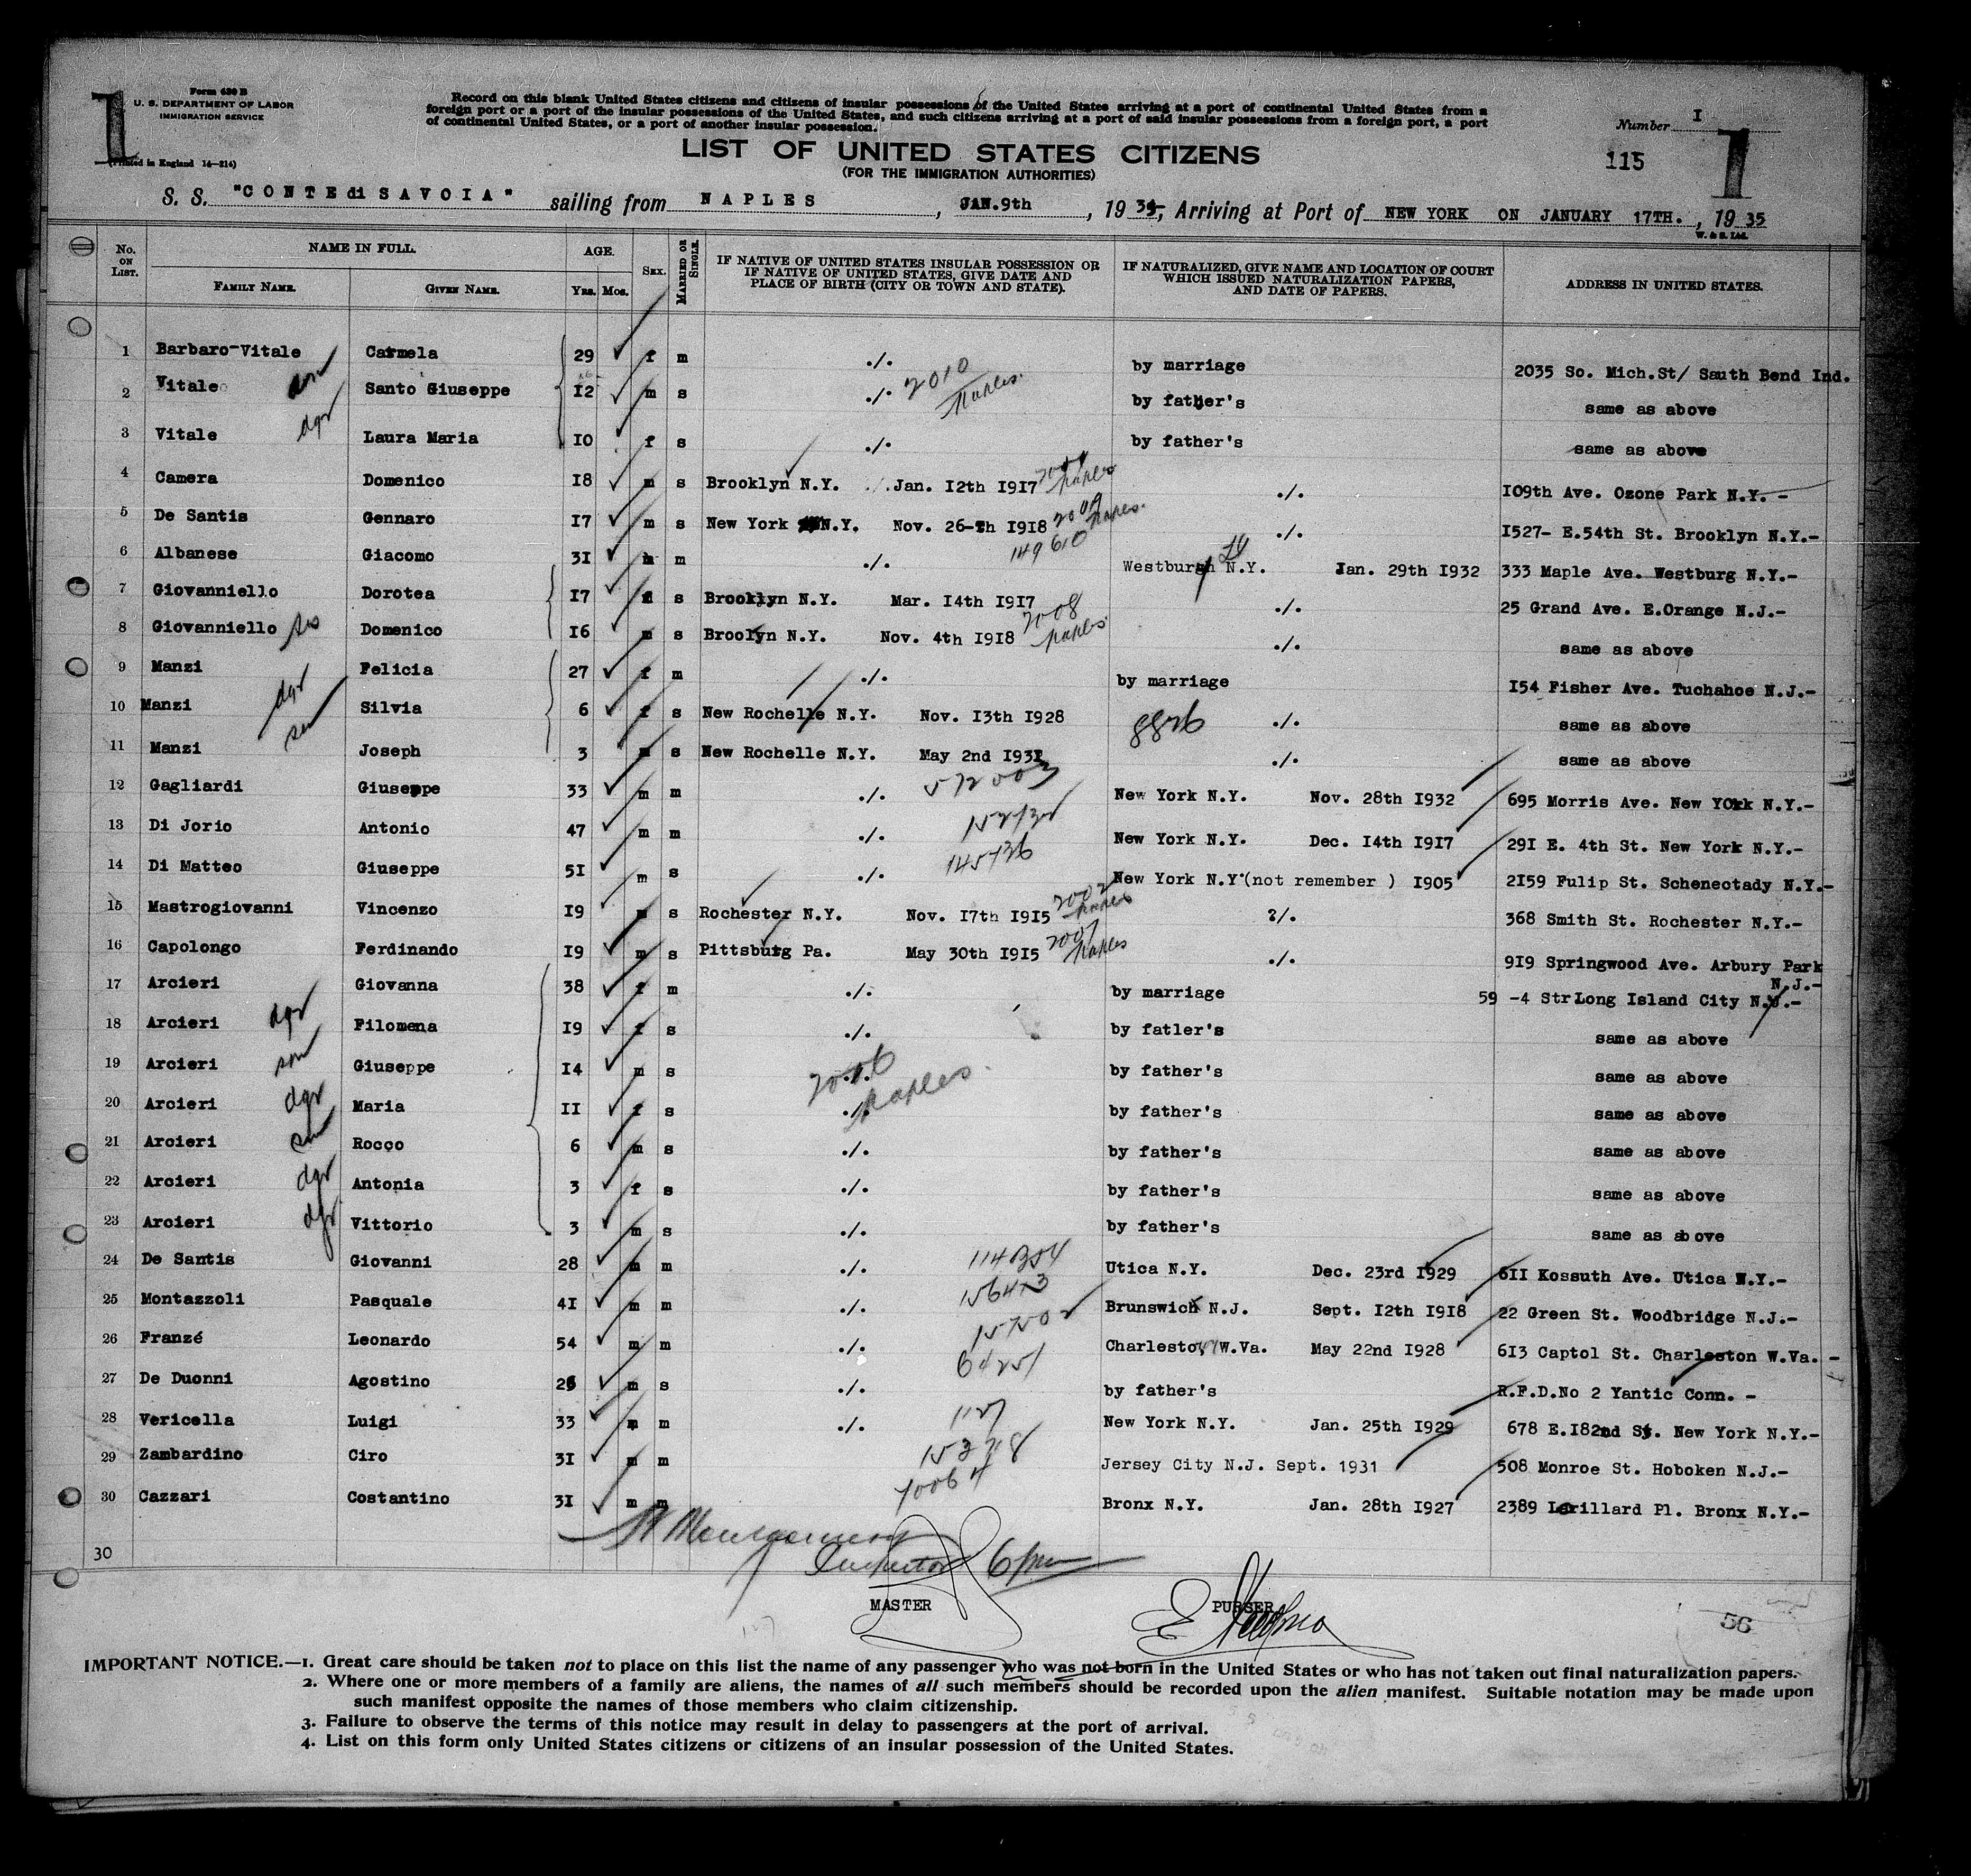 1
Form 630 B
U. S. DEPARTMENT OF LABOR
IMMIGRATION SERVICE
(Printed in England 14—214)
Record on this blank United States citizens and citizens of insular possessions of the United States arriving at a port of continental United States from a
foreign port or a port of the insular possessions of the United States, and such citizens arriving at a port of said insular possessions from a foreign port, a port
of continental United States, or a port of another insular possession.
Number I
115
1
LIST OF UNITED STATES CITIZENS
(FOR THE IMMIGRATION AUTHORITIES)
S. S. "CONTE di SAVOIA" sailing from NAPLES, JAN.9th, 1935, Arriving at Port of NEW YORK ON JANUARY 17TH., 1935
W. & S. Ltd.
No. ON LIST. NAME IN FULL. AGE. SEX. MARRIED OR SINGLE. IF NATIVE OF UNITED STATES INSULAR POSSESSION OR IF NATIVE OF UNITED STATES, GIVE DATE AND PLACE OF BIRTH (CITY OR TOWN AND STATE). IF NATURALIZED, GIVE NAME AND LOCATION OF COURT WHICH ISSUED NATURALIZATION PAPERS, AND DATE OF PAPERS. ADDRESS IN UNITED STATES.
FAMILY NAME. GIVEN NAME. Yrs. Mos.
1 Barbaro-Vitale Carmela 29 f m ./. by marriage 2035 So. Mich.St/ Sauth Bend Ind.
2 Vitale son Santo Giuseppe I2 m s ./. 2010 Naples. by father's same as above
3 Vitale dgr Laura Maria IO f s ./. by father's same as above
4 Camera Domenico I8 m s Brooklyn N.Y. Jan. I2th I9I7 Naples ./. I09th Ave. Ozone Park N.Y.-
5 De Santis Gennaro I7 m s New York N.Y. Nov. 26-th I9I8 2009 Naples. ./. I527- E.54th St. Brooklyn N.Y.-
6 Albanese Giacomo 3I m m ./. 149610 Westburgh N.Y. Jan. 29th I932 333 Maple Ave. Westburg N.Y.-
7 Giovanniello Dorotea I7 f s Brooklyn N.Y. Mar. I4th I9I7 ./. 25 Grand Ave. E.Orange N.J.-
8 Giovanniello Domenico I6 m s Broolyn N.Y. Nov. 4th I9I8 2008 Naples ./. same as above
9 Manzi Felicia 27 f m ./. by marriage I54 Fisher Ave. Tuchahoe N.J.-
10 Manzi dgr Silvia 6 f s New Rochelle N.Y. Nov. I3th I928 8826 ./. same as above
11 Manzi son Joseph 3 m s New Rochelle N.Y. May 2nd I931 ./. same as above
12 Gagliardi Giuseppe 33 m m ./. 572003 New York N.Y. Nov. 28th I932 695 Morris Ave. New York N.Y.-
13 Di Jorio Antonio 47 m m ./. New York N.Y. Dec. I4th I9I7 29I E. 4th St. New York N.Y.-
14 Di Matteo Giuseppe 5I m s ./. 145736 New York N.Y.(not remember ) I905 2I59 Fulip St. Schenectady N.Y.-
15 Mastrogiovanni Vincenzo I9 m s Rochester N.Y. Nov. I7th I9I5 2002 Naples ?/. 368 Smith St. Rochester N.Y.-
16 Capolongo Ferdinando I9 m s Pittsburg Pa. May 30th I9I5 2007 Naples ./. 9I9 Springwood Ave. Arbury Park N.J.-
17 Arcieri Giovanna 38 f m ./. by marriage 59 -4 Str Long Island City N.Y.-
18 Arcieri dgr Filomena I9 f s ./. by fatler's same as above
19 Arcieri son Giuseppe I4 m s ./. 2006 by father's same as above
20 Arcieri dgr Maria II f s ./. Naples. by father's same as above
21 Arcieri son Rocco 6 m s ./. by father's same as above
22 Arcieri dgr Antonia 3 f s ./. by father's same as above
23 Arcieri dgr Vittorio 3 m s ./. by father's same as above
24 De Santis Giovanni 28 m m ./. 114354 Utica N.Y. Dec. 23rd I929 6II Kossuth Ave. Utica N.Y.-
25 Montazzoli Pasquale 4I m m ./. Brunswick N.J. Sept. I2th I9I8 22 Green St. Woodbridge N.J.-
26 Franzé Leonardo 54 m m ./. 157502 Charleston W.Va. May 22nd I928 6I3 Captol St. Charleston W.Va. -
27 De Duonni Agostino 26 m s ./. 64251 by father's R.F.D.No 2 Yantic Conn. -
28 Vericella Luigi 33 m m ./. 1127 New York N.Y. Jan. 25th I929 678 E.I82nd St. New York N.Y.-
29 Zambardino Ciro 3I m m Jersey City N.J. Sept. 1931 508 Monroe St. Hoboken N.J.-
30 Cazzari Costantino 3I m m 70064 Bronx N.Y. Jan. 28th I927 2389 Lorillard Pl. Bronx N.Y.-
30
Montgomery
Inspector 6pm
MASTER PURSER
56
IMPORTANT NOTICE.—1. Great care should be taken not to place on this list the name of any passenger who was not born in the United States or who has not taken out final naturalization papers.
2. Where one or more members of a family are aliens, the names of all such members should be recorded upon the alien manifest. Suitable notation may be made upon
such manifest opposite the names of those members who claim citizenship.
3. Failure to observe the terms of this notice may result in delay to passengers at the port of arrival.
4. List on this form only United States citizens or citizens of an insular possession of the United States.